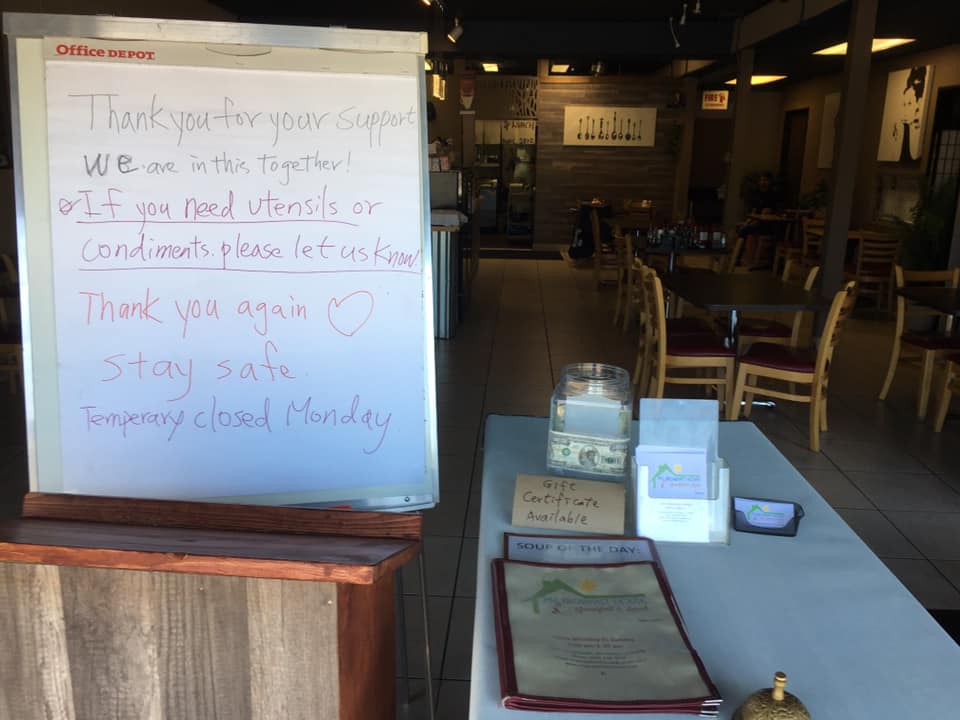 Office DEPOT
Thank you for your support
we are in this together!
If you need utensils or
condiments. please let us know
Thank you again ♡
stay safe.
Temperary closed Monday
FIRE
LUNCH
Gift
Certificate
Available
SOUP OF THE DAY:
My BREAKFAST HOUSE